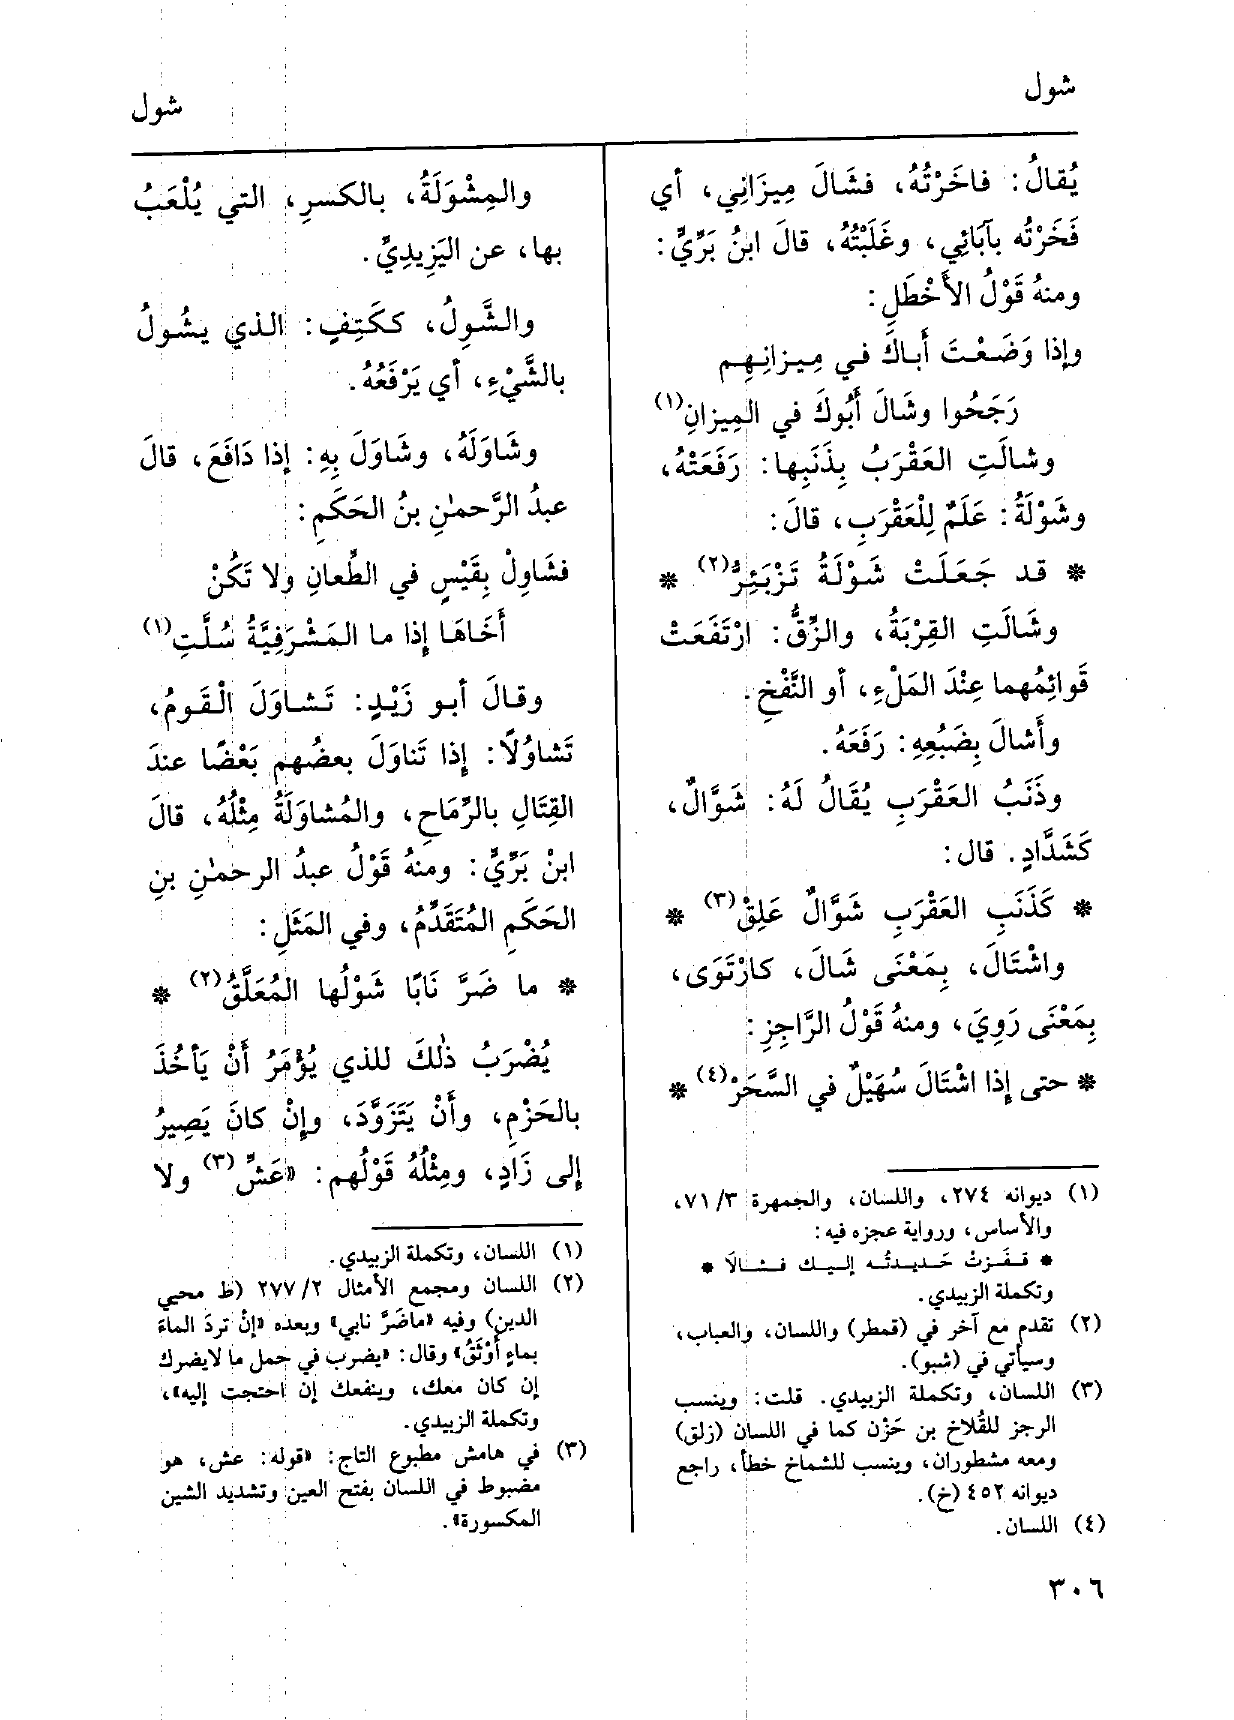 شول
شول
يُقالُ: فاخَرْتُهُ، فشَالَ مِيزَانِي، أي
فَخَرْتُه بآبَائِي، وغَلَبْتُهُ، قالَ ابنُ بَرِّيٍّ:
ومنهُ قَوْلُ الأَخْطَلِ:
وإذا وَضَعْتَ أَباكَ في مِيزانِهِم
رَجَحُوا وشَالَ أَبُوكَ في المِيزانِ(١)
وشالَتِ العَقْرَبُ بِذَنَبِها: رَفَعَتْهُ،
وشَوْلَةُ: عَلَمٌ لِلْعَقْرَبِ، قالَ:
* قد جَعَلَتْ شَوْلَةُ تَزْبَئِرُّ(٢) *
وشَالَتِ القِرْبَةُ، والزِّقُّ: ارْتَفَعَتْ
قَوائِمُهما عِنْدَ المَلْءِ، أو النَّفْخِ.
وأَشالَ بِضَبُعِهِ: رَفَعَهُ.
وذَنَبُ العَقْرَبِ يُقَالُ لَهُ: شَوَّالٌ،
كَشَدَّادٍ. قال:
* كَذَنَبِ العَقْرَبِ شَوَّالٌ عَلِقْ(٣) *
واشْتَالَ، بِمَعْنَى شَالَ، كارْتَوَى،
بِمَعْنَى رَوِيَ، ومنهُ قَوْلُ الرَّاجِزِ:
* حتى إِذا اشْتَالَ سُهَيْلٌ في السَّحَرْ(٤) *
(١) ديوانه ٢٧٤، واللسان، والجمهرة ٧١/٣،
والأساس، ورواية عجزه فيه:
* قفَزتْ حَديدتُه إليك فشالَا *
وتكملة الزبيدي.
(٢) تقدم مع آخر في (قمطر) واللسان، والعباب،
وسيأتي في (شبو).
(٣) اللسان، وتكملة الزبيدي. قلت: وينسب
الرجز للقُلاخ بن حَزْن كما في اللسان (زلق)
ومعه مشطوران، وينسب للشماخ خطأ، راجع
ديوانه ٤٥٢ (خ).
(٤) اللسان.
والمِشْوَلَةُ، بالكسرِ، التي يُلْعَبُ
بها، عن اليَزِيدِيِّ.
والشَّوِلُ، ككَتِفٍ: الذي يشُولُ
بالشَّيْءِ، أي يَرْفَعُهُ.
وشَاوَلَهُ، وشَاوَلَ بِهِ: إذا دَافَعَ، قالَ
عبدُ الرَّحمٰنِ بنُ الحَكَمِ:
فشَاوِلْ بِقَيْسٍ في الطِّعانِ ولا تَكُنْ
أَخَاهَا إذا ما المَشْرَفِيَّةُ سُلَّتِ(١)
وقالَ أبو زَيْدٍ: تَشاوَلَ الْقَومُ،
تَشاوُلًا: إذا تَناوَلَ بعضُهم بَعْضًا عندَ
القِتَالِ بالرِّمَاحِ، والمُشاوَلَةُ مِثْلُهُ، قالَ
ابنْ بَرِّيٍّ: ومنهُ قَوْلُ عبدُ الرحمٰنِ بنِ
الحَكَمِ المُتَقَدِّمُ، وفي المَثَلِ:
* ما ضَرَّ نَابًا شَوْلُها المُعَلَّقُ(٢) *
يُضْرَبُ ذٰلكَ للذي يُؤْمَرُ أَنْ يَأخُذَ
بالحَزْمِ، وأَنْ يَتَزَوَّدَ، وإِنْ كانَ يَصِيرُ
إلى زَادٍ، ومِثْلُهُ قَوْلُهم: «عَشِّ(٣) ولا
(١) اللسان، وتكملة الزبيدي.
(٢) اللسان ومجمع الأمثال ٢٧٧/٢ (ط محيي
الدين) وفيه «ماضَرَّ نابي» وبعده «إنْ تردَ الماءَ
بماءٍ أَوْثَقُ» وقال: «يضرب في حمل ما لايضرك
إن كان معك، وينفعك إن احتجت إليه»،
وتكملة الزبيدي.
(٣) في هامش مطبوع التاج: «قوله: عش، هو
مضبوط في اللسان بفتح العين وتشديد الشين
المكسورة».
٣٠٦